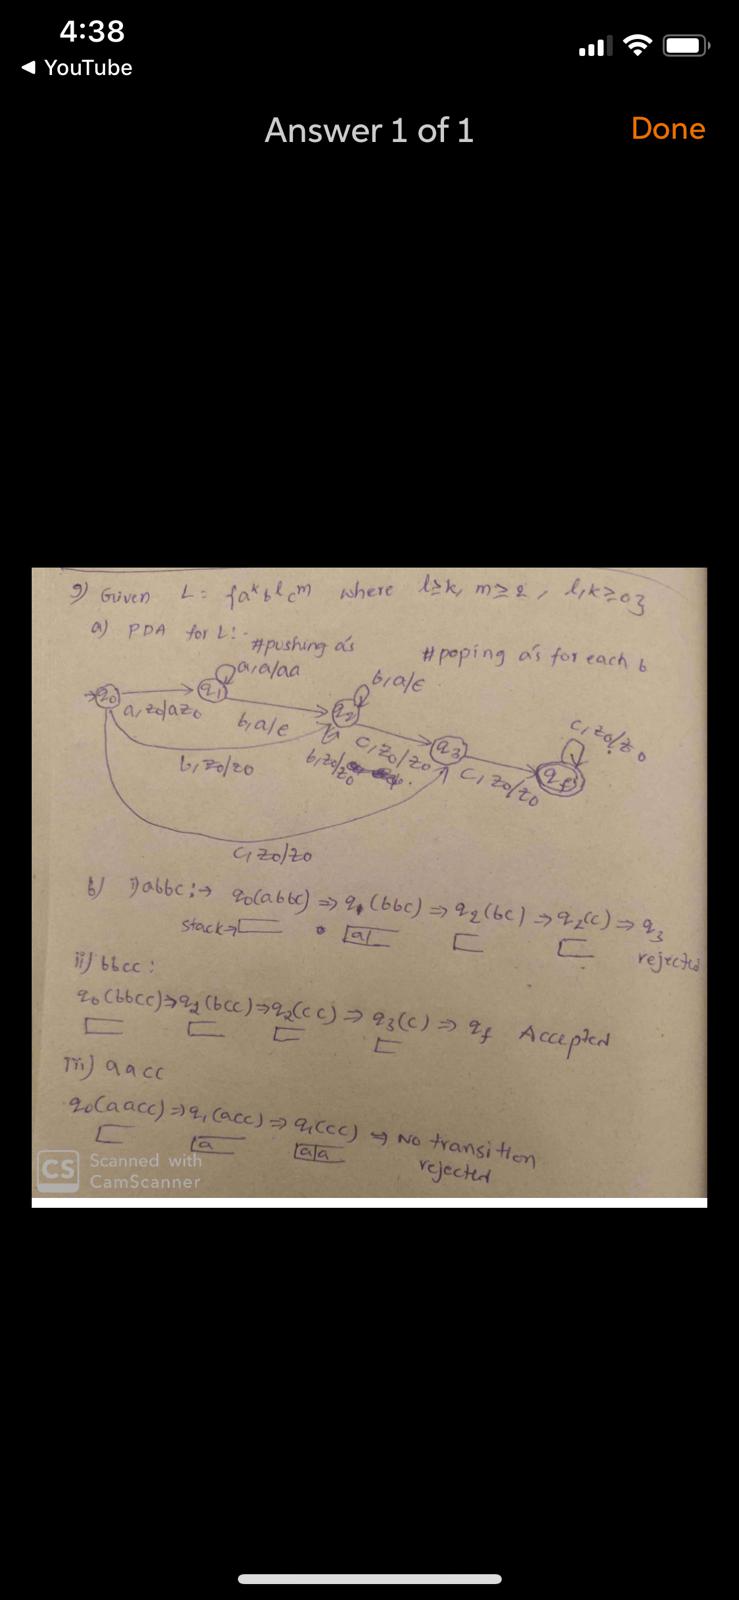 4:38
◀ YouTube
Answer 1 of 1
Done
9) Given L = {a^k b^l c^m where l≥k, m≥2, l,k≥0}
a) PDA for L:-
#pushing a's
#poping a's for each b
a,a/aa
b,a/ε
q0
q1
q2
q3
qf
a,z0/az0
b,a/ε
c,z0/z0
c,z0/z0
c,z0/z0
b,z0/z0
b,z0/z0
c,z0/z0
b) i) abbc :→ q0(abbc) ⇒ q1(bbc) ⇒ q2(bc) ⇒ q2(c) ⇒ q3
stack→ a rejected
ii) bbcc :
q0(bbcc) ⇒ q2(bcc) ⇒ q2(cc) ⇒ q3(c) ⇒ qf Accepted
iii) aacc
q0(aacc) ⇒ q1(acc) ⇒ q1(cc) → No transition
a a a rejected
CS Scanned with
CamScanner